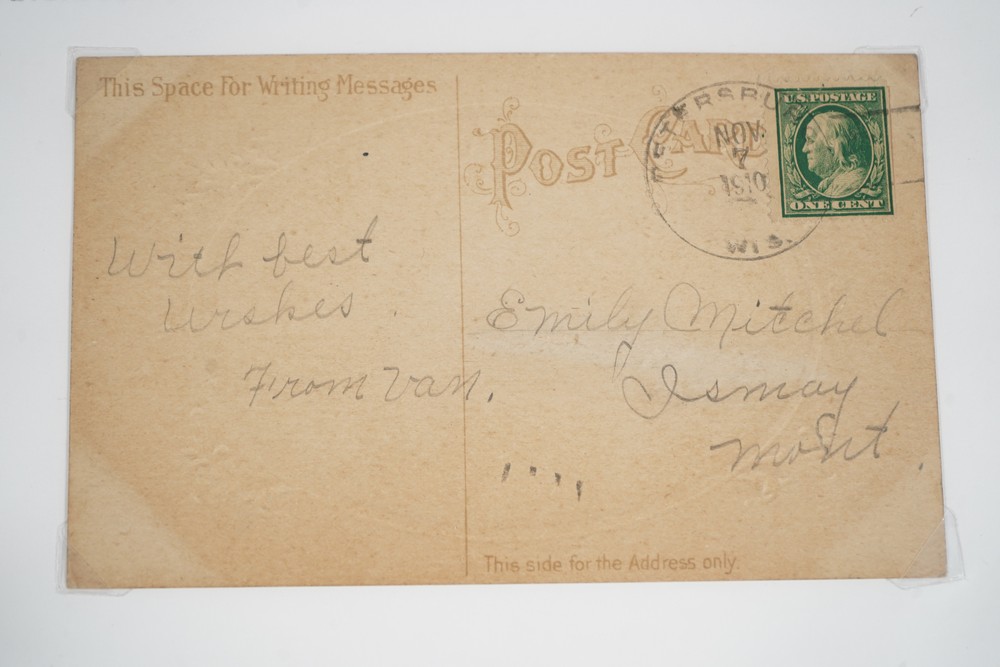 This Space For Writing Messages
POST CARD
PETERSBURG
NOV
7
1910
WIS.
U.S. POSTAGE
ONE CENT
With best
wishes.
From Van.
Emily Mitchel
Ismay
Mont.
This side for the Address only.